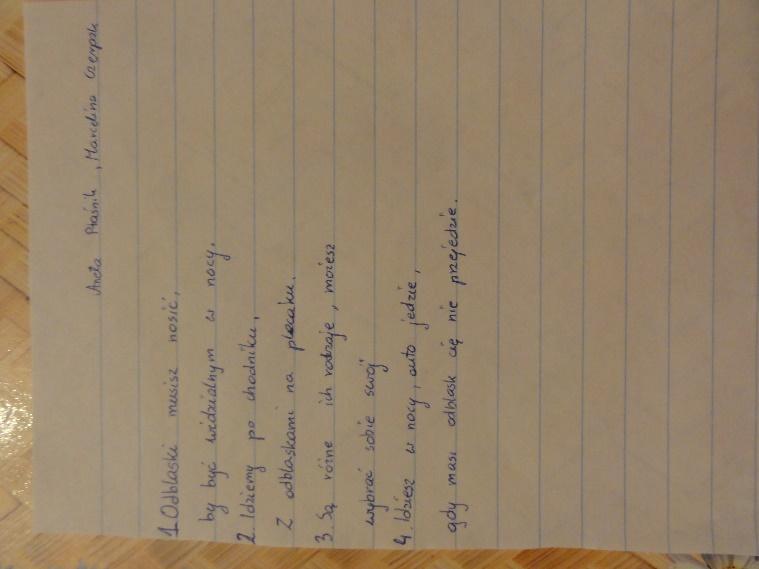 Aneta Ptaśnik, Marcelina Czerpak
1. Odblaski musisz nosić,
by być widzialnym w nocy.
2. Idziemy po chodniku,
z odblaskami na plecaku.
3. Są różne ich rodzaje, możesz
wybrać sobie swój
4. Idziesz w nocy, auto jedzie,
gdy masz odblask cię nie przejedzie.